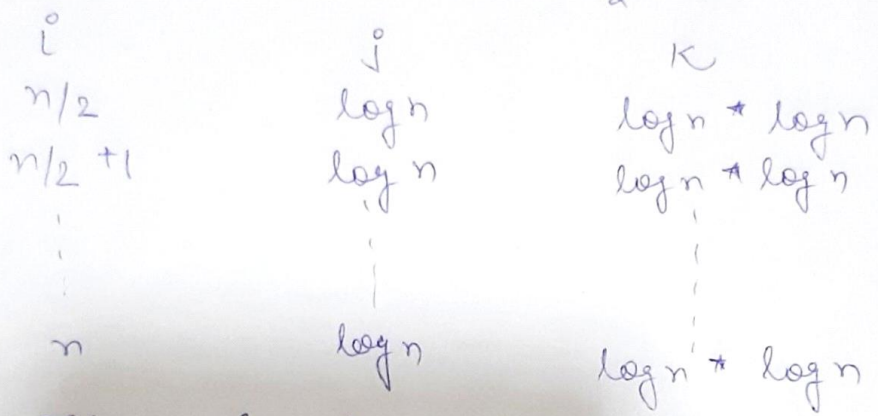 i j k
n/2 log n log n * log n
n/2 +1 log n log n * log n
n log n log n * log n